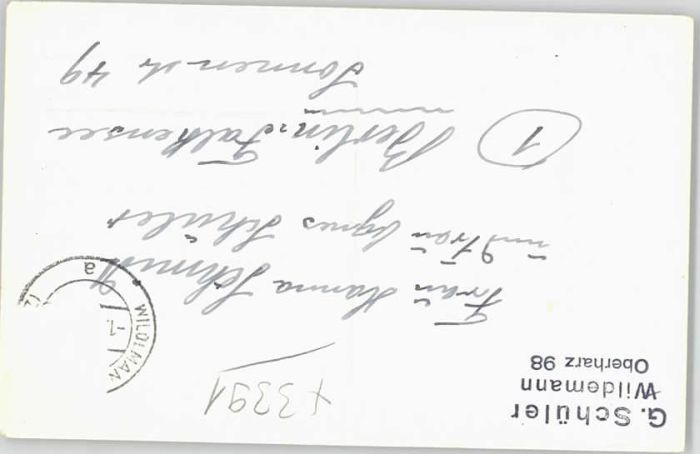 G. Schüler
Wildemann
Oberharz 98
+3391
WILDEMAN
a
Frau Hanna Schmidt
und Frau Agnes Schüler
1
Berlin-Falkensee
Sonnenstr 49